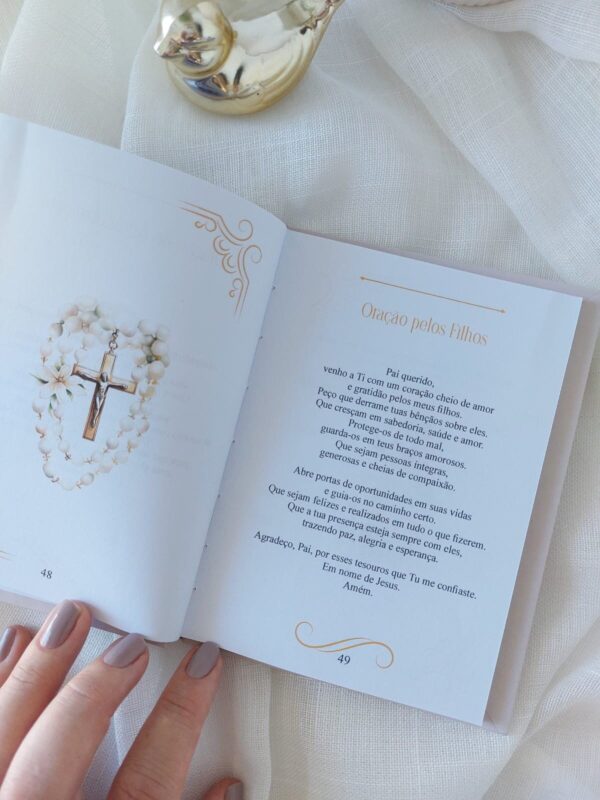 48
Oração pelos Filhos
Pai querido,
venho a Ti com um coração cheio de amor
e gratidão pelos meus filhos.
Peço que derrame tuas bênçãos sobre eles.
Que cresçam em sabedoria, saúde e amor.
Protege-os de todo mal,
guarda-os em teus braços amorosos.
Que sejam pessoas íntegras,
generosas e cheias de compaixão.
Abre portas de oportunidades em suas vidas
e guia-os no caminho certo.
Que sejam felizes e realizados em tudo o que fizerem.
Que a tua presença esteja sempre com eles,
trazendo paz, alegria e esperança.
Agradeço, Pai, por esses tesouros que Tu me confiaste.
Em nome de Jesus.
Amém.
49